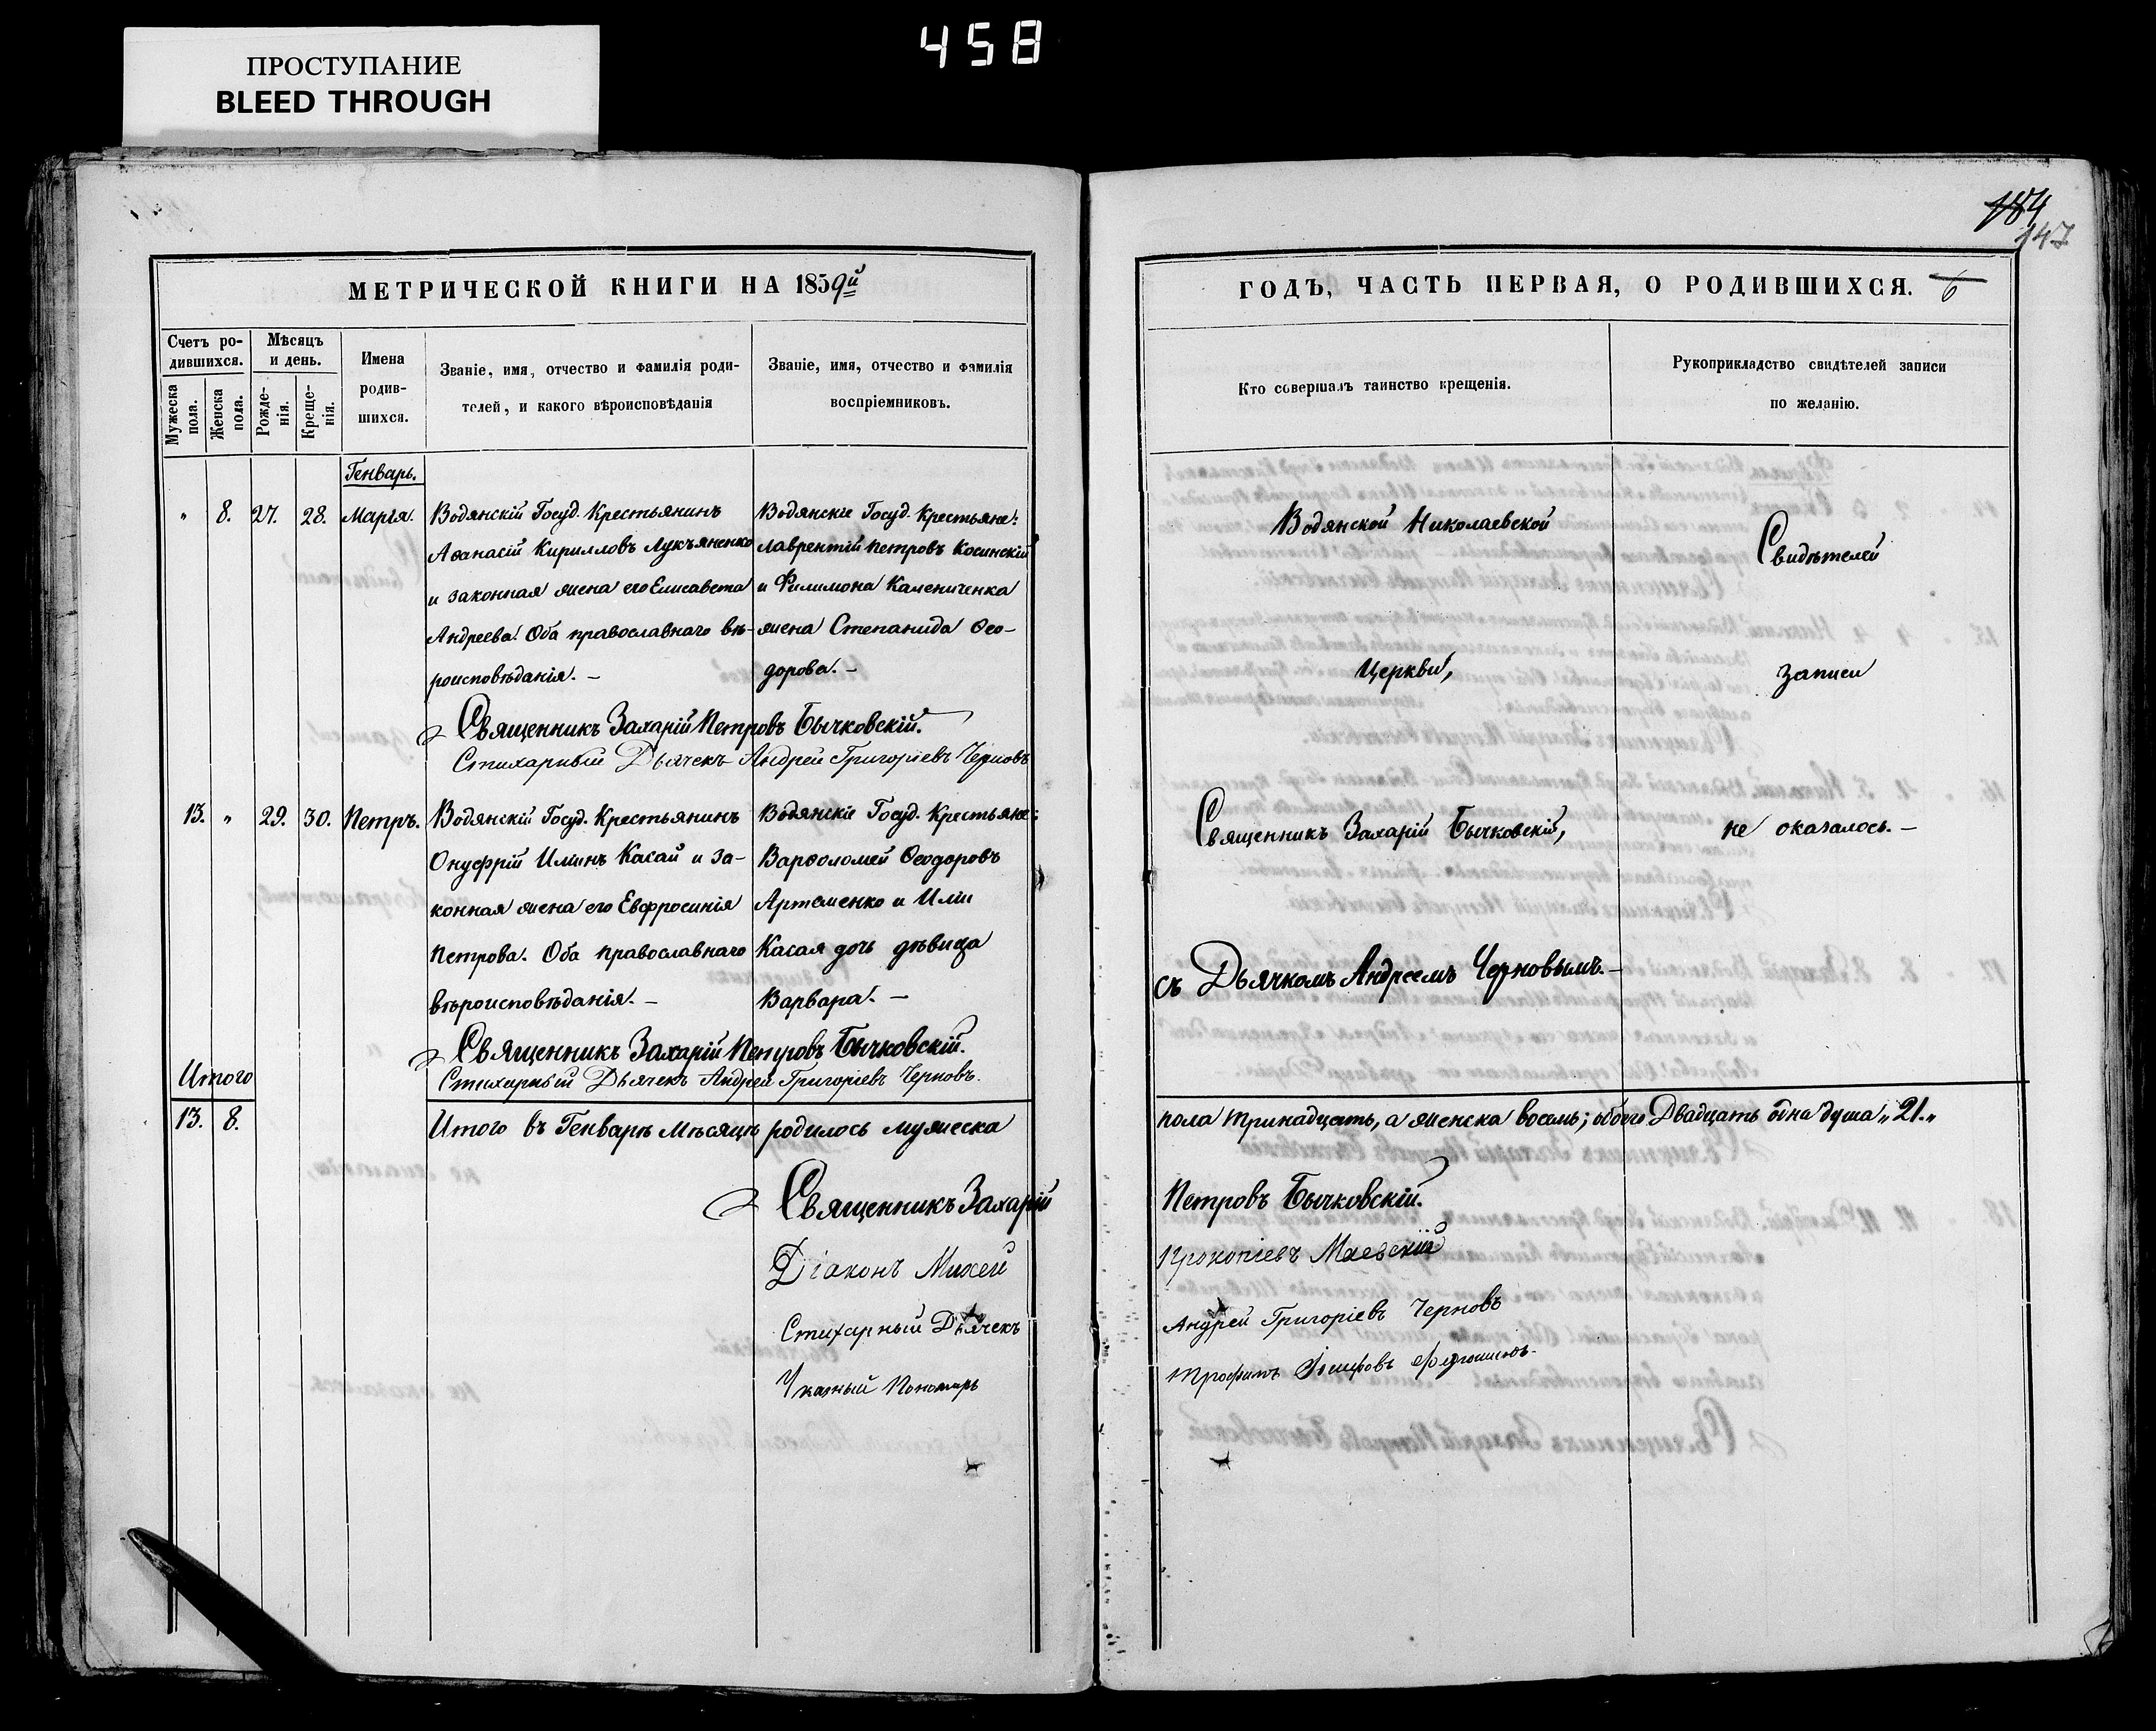 458
ПРОСТУПАНИЕ
BLEED THROUGH
184
147
МЕТРИЧЕСКОЙ КНИГИ НА 1859й
Счетъ ро-
дившихся.
Мужеска
пола.
Женска
пола.
Мѣсяцъ
и день.
Рожде-
нія.
Креще-
нія.
Имена
родив-
шихся.
Званіе, имя, отчество и фамилія роди-
телей, и какого вѣроисповѣданія
Званіе, имя, отчество и фамилія
воспріемниковъ.
Генварь.
" 8. 27. 28. Марія.
Водянскій Госуд. Крестьянинъ
Аѳанасій Кирилловъ Лукъяненко
и законная жена его Елисавета
Андреева. Оба православнаго вѣ-
роисповѣданія. –
Водянскіе Госуд. Крестьяне:
Лаврентій Петровъ Косинскій
и Филимона Каменниченка
жена Степанида Ѳео-
дорова. –
Священникъ Захарій Петровъ Бычковскій.
Стихарный Дьячекъ Андрей Григоріевъ Черновъ
13. " 29. 30. Петръ.
Водянскій Госуд. Крестьянинъ
Онуфрій Илiинъ Касай и за-
конная жена его Евфросинія
Петрова. Оба православнаго
вѣроисповѣданія. –
Водянскіе Госуд. Крестьяне:
Варѳоломей Ѳеодоровъ
Артеменко и Иліи
Касая дочь дѣвица
Варвара. –
Священникъ Захарій Петровъ Бычковскій.
Стихарный Дьячекъ Андрей Григоріевъ Черновъ.
Итого
13. 8.
Итого въ Генварѣ Мѣсяцѣ родилось мужеска
Священникъ Захарій
Діаконъ Михей
Стихарный Дьячекъ
Указный Пономарь
ГОДЪ, ЧАСТЬ ПЕРВАЯ, О РОДИВШИХСЯ. 6
Кто совершалъ таинство крещенія.
Рукоприкладство свидѣтелей записи
по желанію.
Водянской Николаевской
Церкви,
Священникъ Захарій Бычковскій,
съ Дьячкомъ Андреемъ Черновымъ. –
Свидѣтелей
записи
не оказалось. –
пола тринадцать, а женска восемь; обоего Двадцать одна душа „21.„
Петровъ Бычковскій.
Прокопіевъ Маевскій
Андрей Григоріевъ Черновъ
Трофимъ